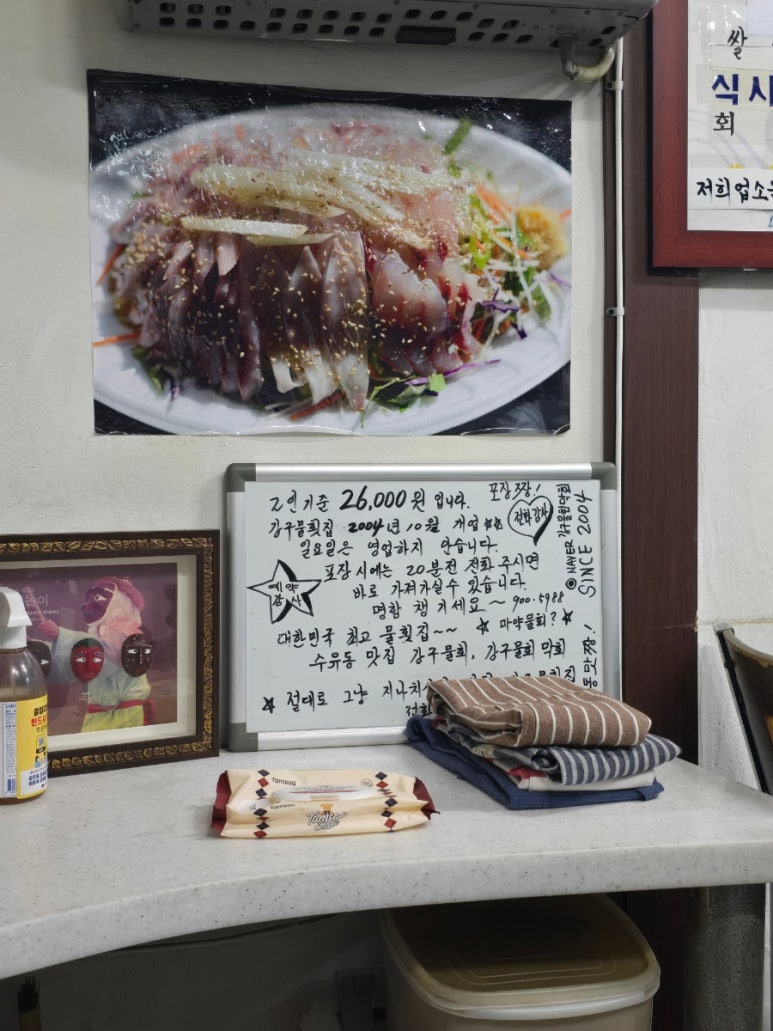 쌀
식사
회
저희업소
2인기준 26,000원 입니다.
포장 3장!
전화감사
강구물횟집 2004년 10월 개업
일요일은 영업하지 안습니다.
예약
감사
포장시에는 20분전 전화 주시면
바로 가져가실수 있습니다.
명함 챙기세요~ 900.5988
대한민국 최고 물횟집~~ ★ 마약물회? ★
수유동 맛집 강구물회, 강구물회 막회
★ 절대로 그냥 지나치
NAVER 강구물회막회
SINCE 2004
맛짱!
Tamsaa
Tamsaa